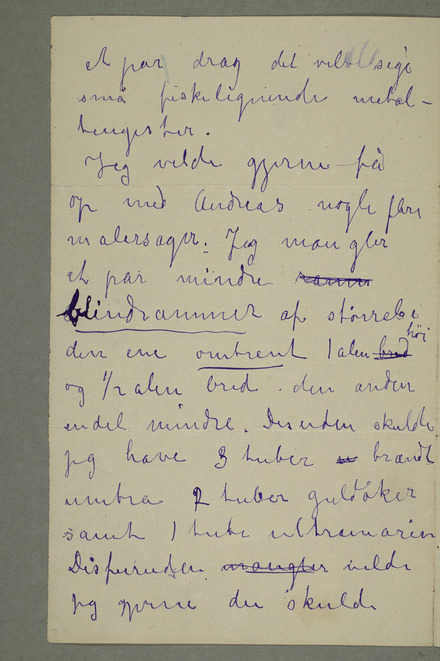 et par drag det vil sige
små fiskelignende metal-
tingester.
Jeg vilde gjerne få
op med Andreas nogle flere
malersager. Jeg mangler
et par mindre ramme
blindrammer af størrelse
den ene omtrent 1 alen bred høi
og 1/2 alen bred. den anden
endel mindre. Desuden skulde
jeg have 3 tuber brændt
umbra 2 tuber guldoker
samt 1 tube ultramarin
Desforuden mangler vilde
jeg gjerne du skulde